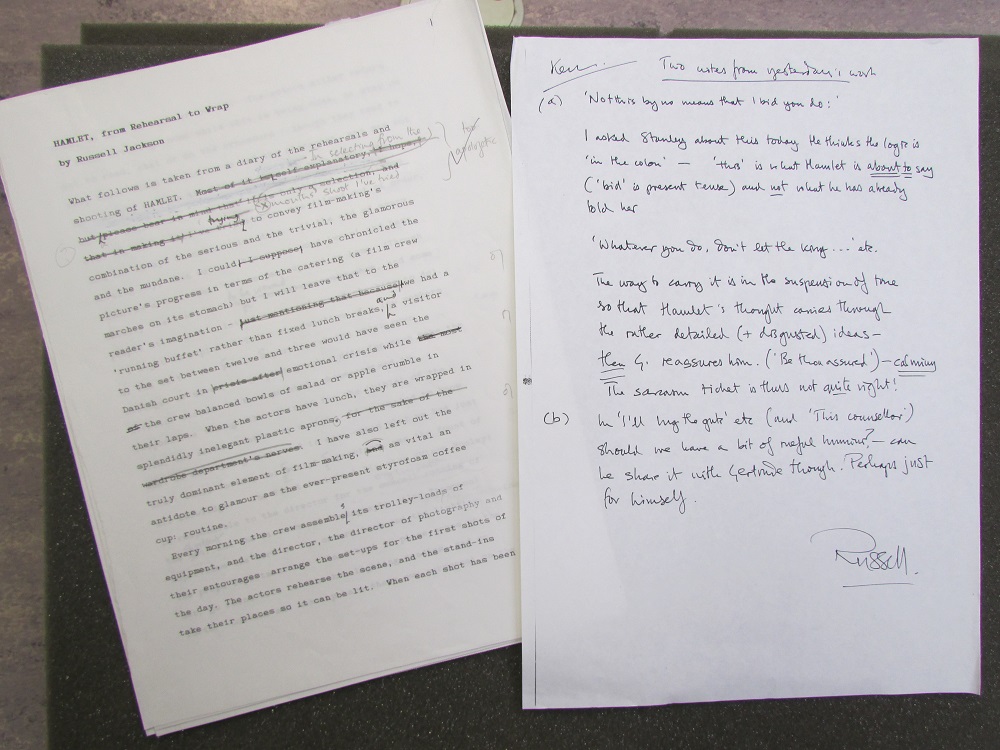 1
HAMLET, from Rehearsal to Wrap
by Russell Jackson
What follows is taken from a diary of the rehearsals and
shooting of HAMLET. Most of it is self explanatory, I hope,
in selecting from the
too
apologetic
but please bear in mind that it is only a selection, and
month's shoot I've tried
that in making it I've trying to convey film-making's
combination of the serious and the trivial, the glamorous
and the mundane. I could, I suppose, have chronicled the
picture's progress in terms of the catering (a film crew
marches on its stomach) but I will leave that to the
reader's imagination - just mentioning that because we had a
'running buffet' rather than fixed lunch breaks, and a visitor
to the set between twelve and three would have seen the
Danish court in crisis after emotional crisis while the most
of the crew balanced bowls of salad or apple crumble in
their laps. When the actors have lunch, they are wrapped in
splendidly inelegant plastic aprons, for the sake of the
wardrobe department's nerves. I have also left out the
truly dominant element of film-making, and as vital an
antidote to glamour as the ever-present styrofoam coffee
cup: routine.
Every morning the crew assembles its trolley-loads of
equipment, and the director, the director of photography and
their entourages arrange the set-ups for the first shots of
the day. The actors rehearse the scene, and the stand-ins
take their places so it can be lit. When each shot has been
Ken
Two notes from yesterday's work
(a) 'Not this by no means that I bid you do:'
I asked Stanley about this today. He thinks the logic is
'in the colon' — 'this' is what Hamlet is about to say
('bid' is present tense) and not what he has already
told her
'Whatever you do, don't let the king...' etc.
The way to carry it is in the suspension of time
so that Hamlet's thought carries through
the rather detailed (+ disgusted) ideas —
then G. reassures him. ('Be thou assured') — calming
The sarcasm ticket is thus not quite right!
(b) In 'I'll lug the guts' etc (and 'This counsellor')
should we have a bit of rueful humour? — can
he share it with Gertrude though. Perhaps just
for himself.
Russell.